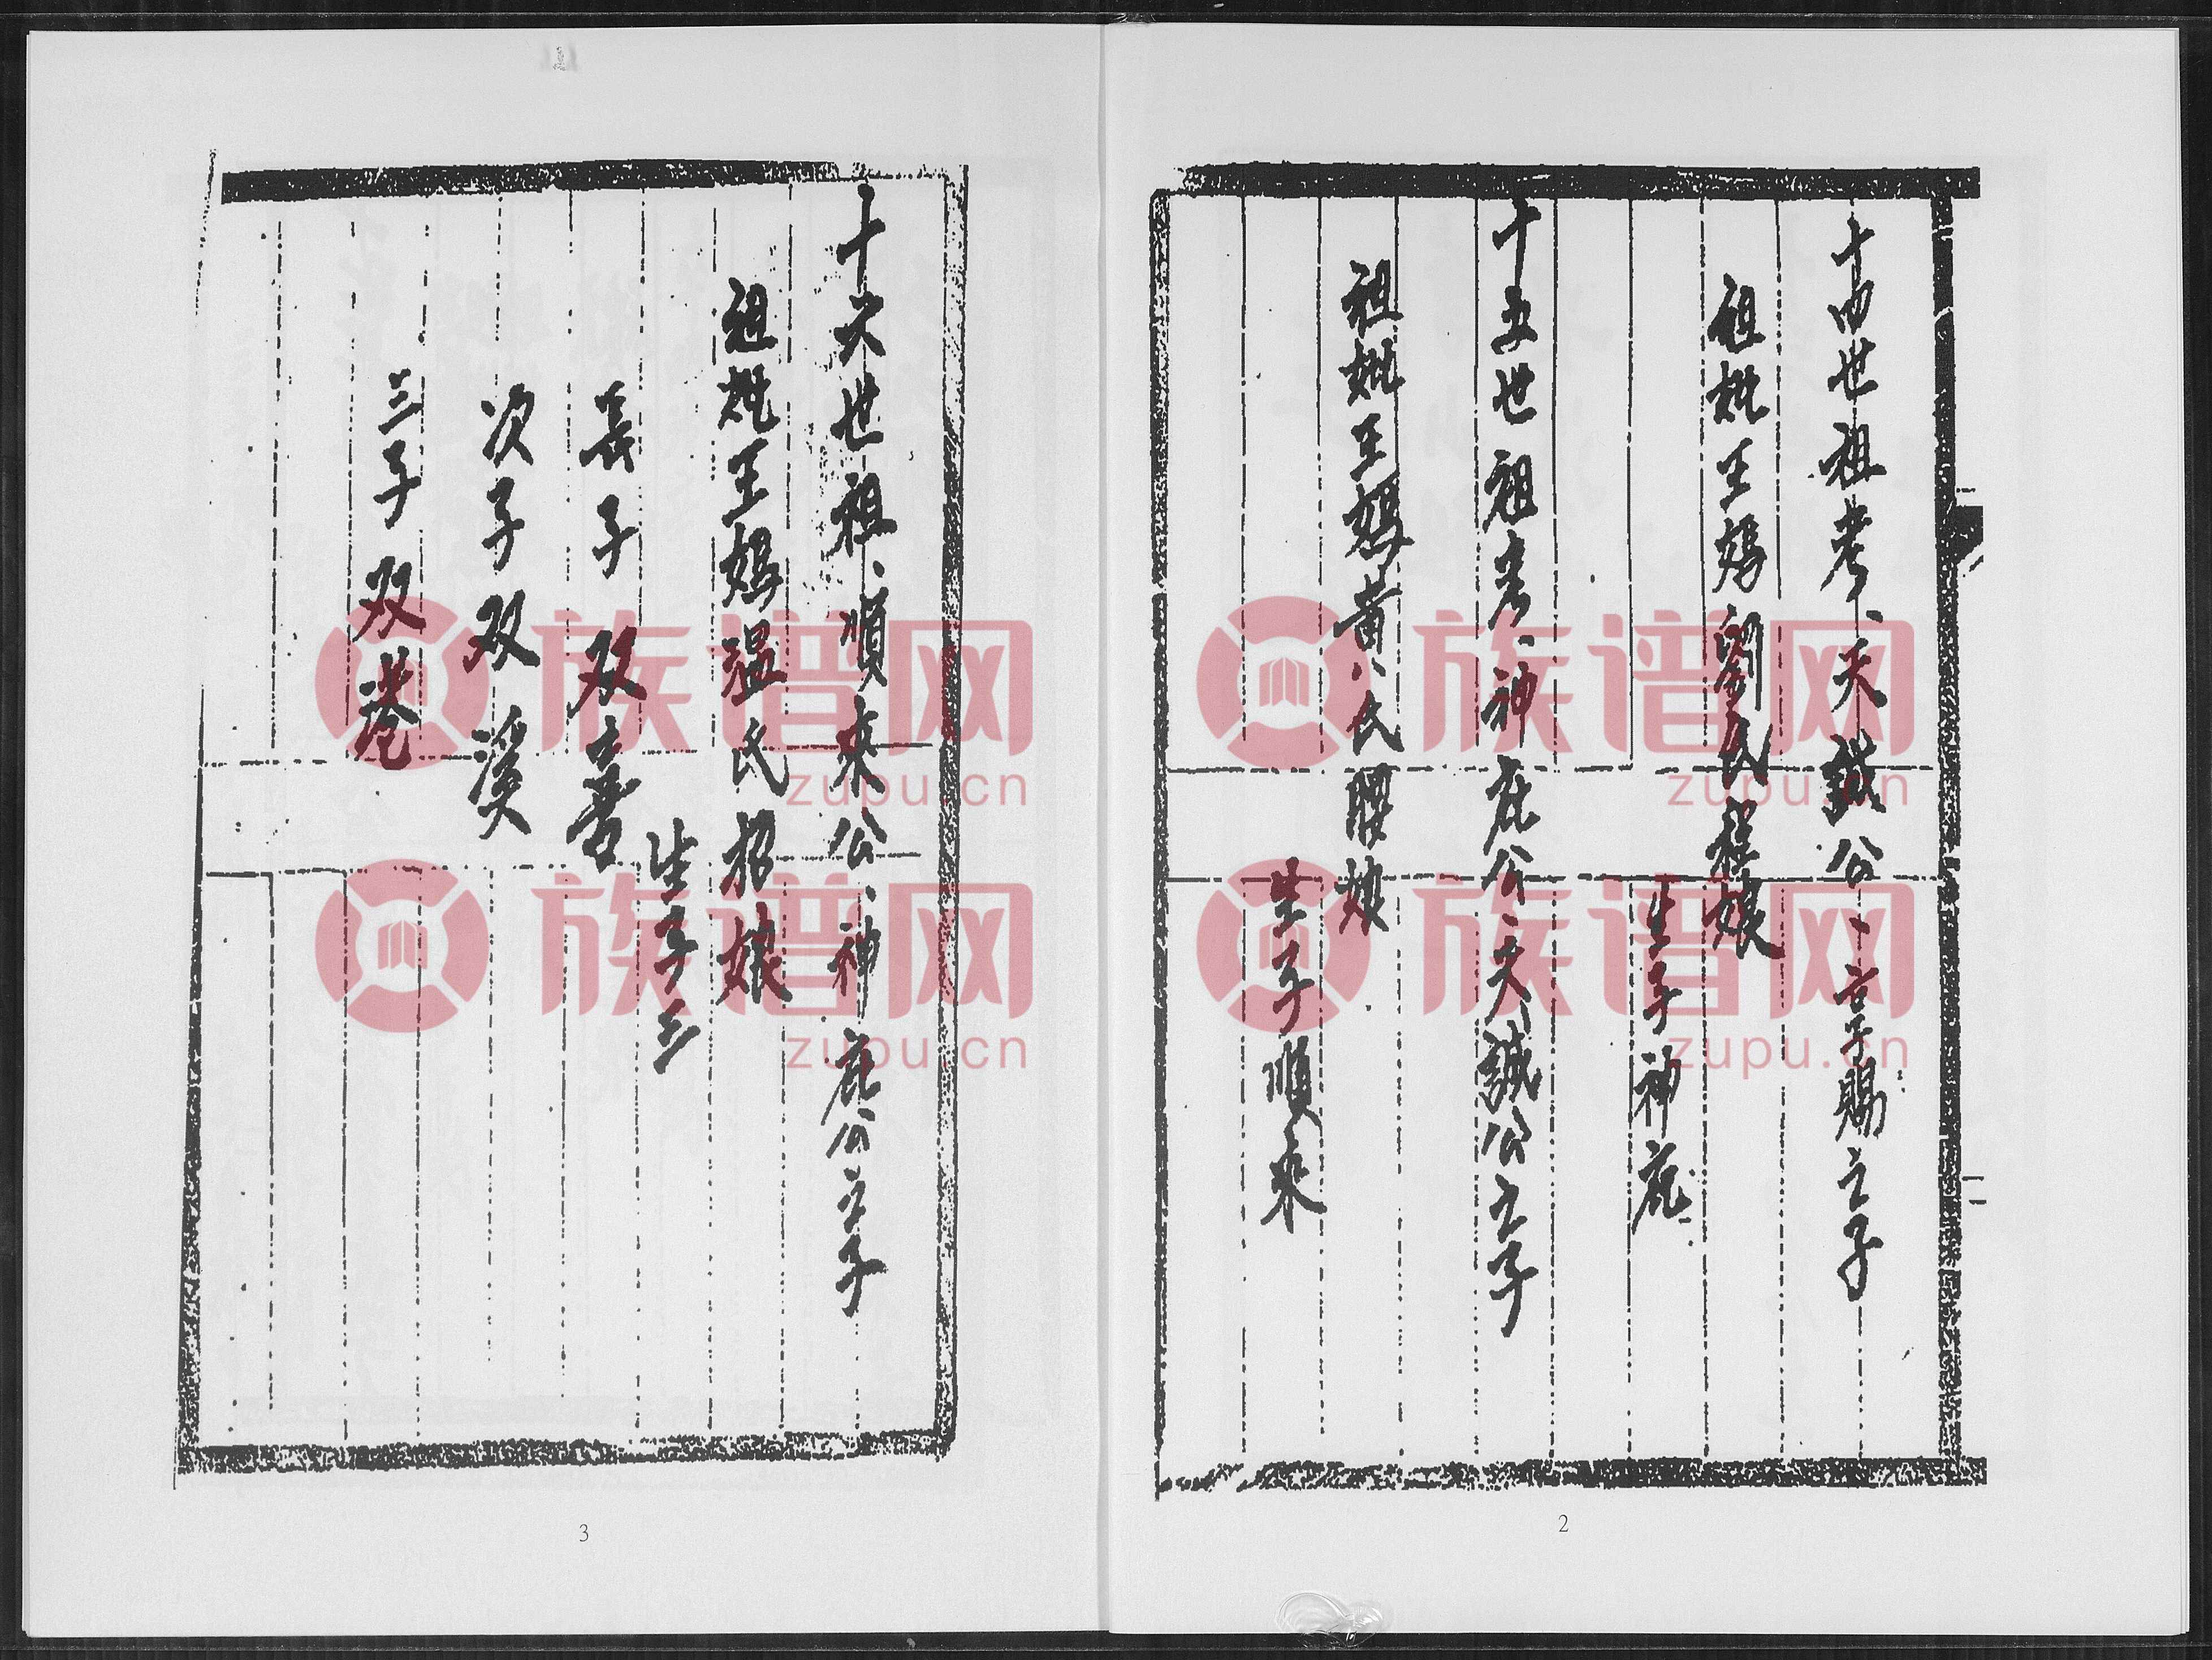 十四世祖考、天誠公、言賜之子
祖妣王媽劉氏程娘
生子神庇
十五世祖考、神庇公、天誠公之子
祖妣王媽黃氏腰娘
生子順來
2
十六世祖、順來公、神庇公之子
祖妣王媽温氏招娘
生子三
長子双喜
次子双溪
三子双港
3
族谱网
zupu.cn
族谱网
zupu.cn
族谱网
zupu.cn
族谱网
zupu.cn